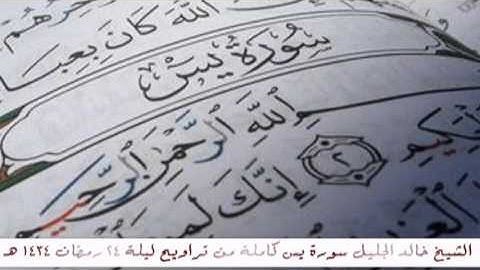 اللَّهَ كَانَ بِعِبَا
سُورَةُ يسٓ
اللَّهِ الرَّحْمَٰنِ الرَّحِيمِ
كِيمِ ٢ إِنَّكَ لَمِ
الشيخ خالد الجليل سورة يس كاملة من تراويح ليلة ٢٤ رمضان ١٤٣٤ هـ